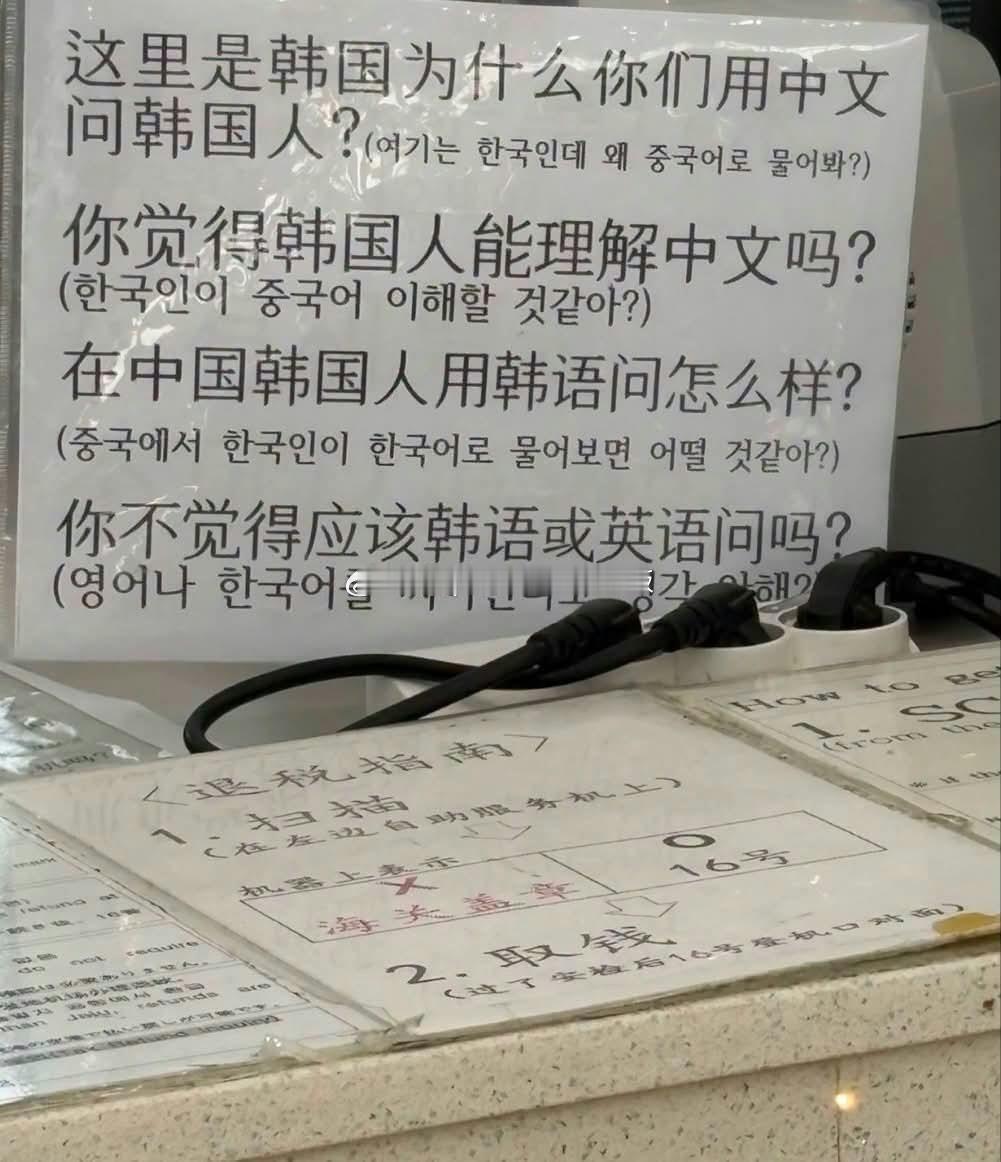 这里是韩国为什么你们用中文
问韩国人?(여기는 한국인데 왜 중국어로 물어봐?)
你觉得韩国人能理解中文吗?
(한국인이 중국어 이해할 것같아?)
在中国韩国人用韩语问怎么样?
(중국에서 한국인이 한국어로 물어보면 어떨 것같아?)
你不觉得应该韩语或英语问吗?
(영어나 한국어로
<退税指南>
1. 扫描
(在左边自助服务机上)
机器上表示
X O
海关盖章 16号
2. 取钱
(过了安检后16号登机口对面)
How to ge
1. SC
(from the
* if th
refund at
do not require
refunds are